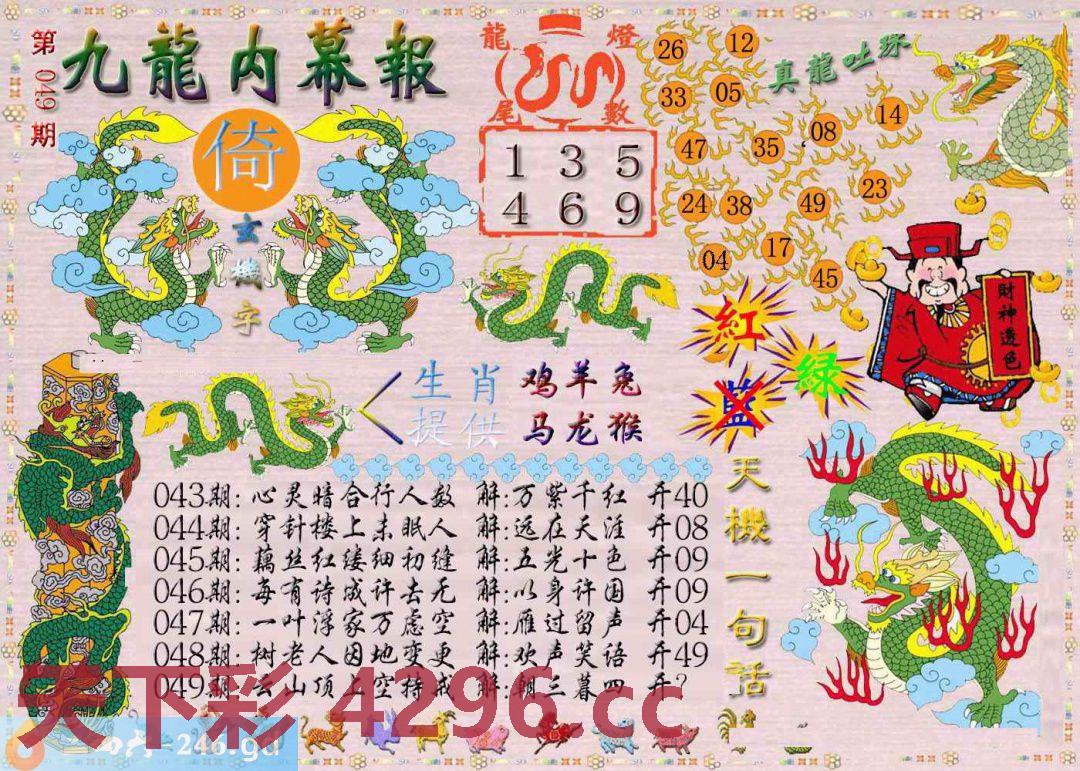 第049期
九龍内幕報
倚
玄機字
龍燈尾數
1 3 5
4 6 9
真龍吐珠
26 12
33 05
14
08
47 35
23
24 38 49
17
04 45
財神透色
紅
绿
藍
生肖提供
鸡羊兔
马龙猴
天機一句話
043期:心灵暗合行人数 解:万紫千红 开40
044期:穿针楼上未眠人 解:远在天涯 开08
045期:藕丝红缕细初缝 解:五光十色 开09
046期:每有诗成许去无 解:以身许国 开09
047期:一叶浮家万虑空 解:雁过留声 开04
048期:树老人因地变更 解:欢声笑语 开49
049期:云山顶上空持戒 解:朝三暮四 开?
天下彩 4296.cc
246.gd